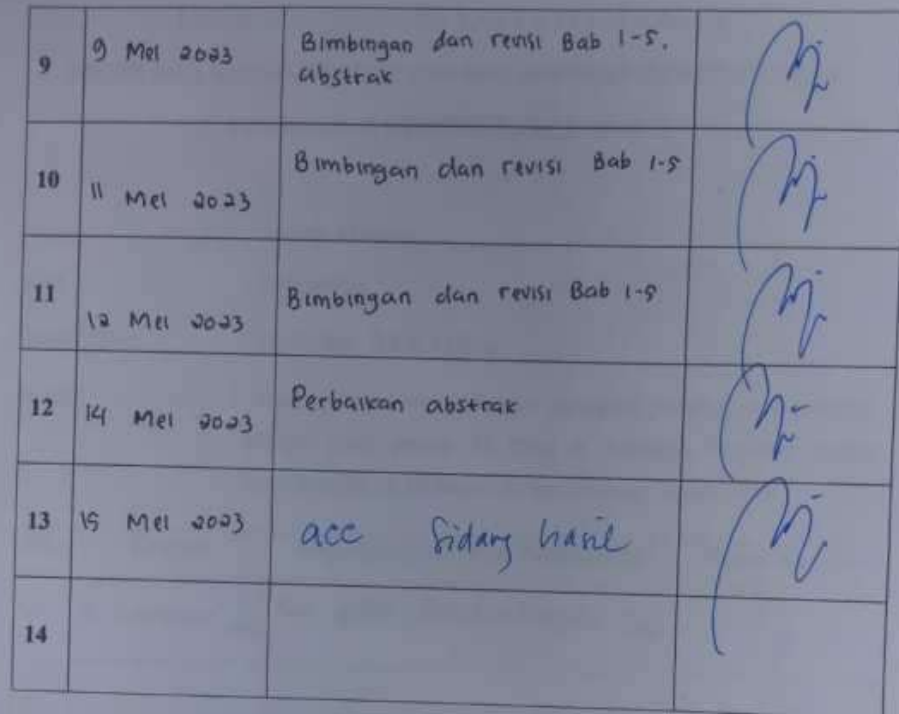 9 9 Mei 2023 Bimbingan dan revisi Bab 1-5.
abstrak
10 11 Mei 2023 Bimbingan dan revisi Bab 1-5
11 12 Mei 2023 Bimbingan dan revisi Bab 1-5
12 14 Mei 2023 Perbaikan abstrak
13 15 Mei 2023 acc Sidang hasil
14